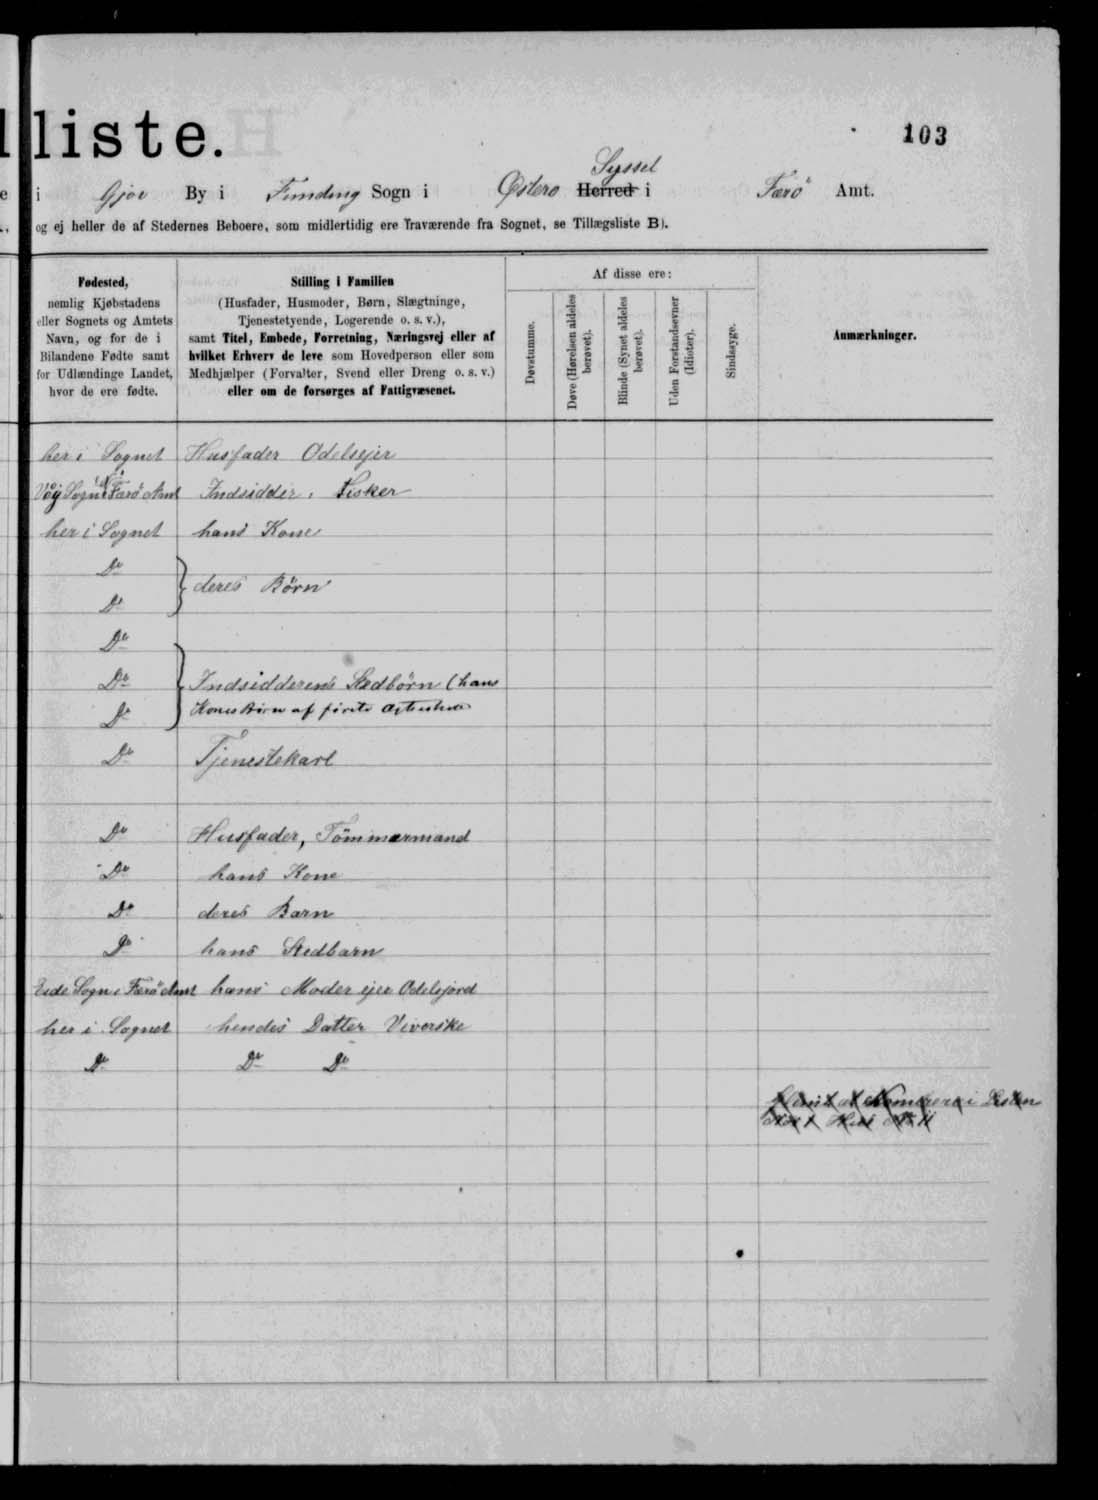 lliste.
103
e i Gjov By i Funding Sogn i Østerø Herred i Syssel Færø Amt.
og ej heller de af Stedernes Beboere, som midlertidig ere fraværende fra Sognet, se Tillægsliste B).
Fødested,
nemlig Kjøbstadens
eller Sognets og Amtets
Navn, og for de i
Bilandene Fødte samt
for Udlændinge Landet,
hvor de ere fødte.
Stilling i Familien
(Husfader, Husmoder, Børn, Slægtninge,
Tjenestetyende, Logerende o. s. v.),
samt Titel, Embede, Forretning, Næringsvej eller af
hvilket Erhverv de leve som Hovedperson eller som
Medhjælper (Forvalter, Svend eller Dreng o. s. v.)
eller om de forsørges af Fattigvæsenet.
Af disse ere:
Døvstumme.
Døve (Hørelsen aldeles
berøvet).
Blinde (Synet aldeles
berøvet).
Uden Forstandsevner
(Idioter).
Sindssyge.
Anmærkninger.
her i Sognet Husfader Odelsejer
Vöÿ Sogn i Færö Amt Indsidder, Fisker
her i Sognet hans Kone
Do
deres Börn
Do
Do
Do Indsidderens Stedbörn (hans
Do Kones Börn af förste Ægteskab
Do Tjenestekarl
Do Husfader, Tömmermand
Do hans Kone
Do deres Barn
Do hans Stedbarn
Eide Sogn i Færö Amt hans Moder ejer Odelsjord
her i Sognet hendes Datter Væverske
Do Do Do
at i Listen
Hus No 11